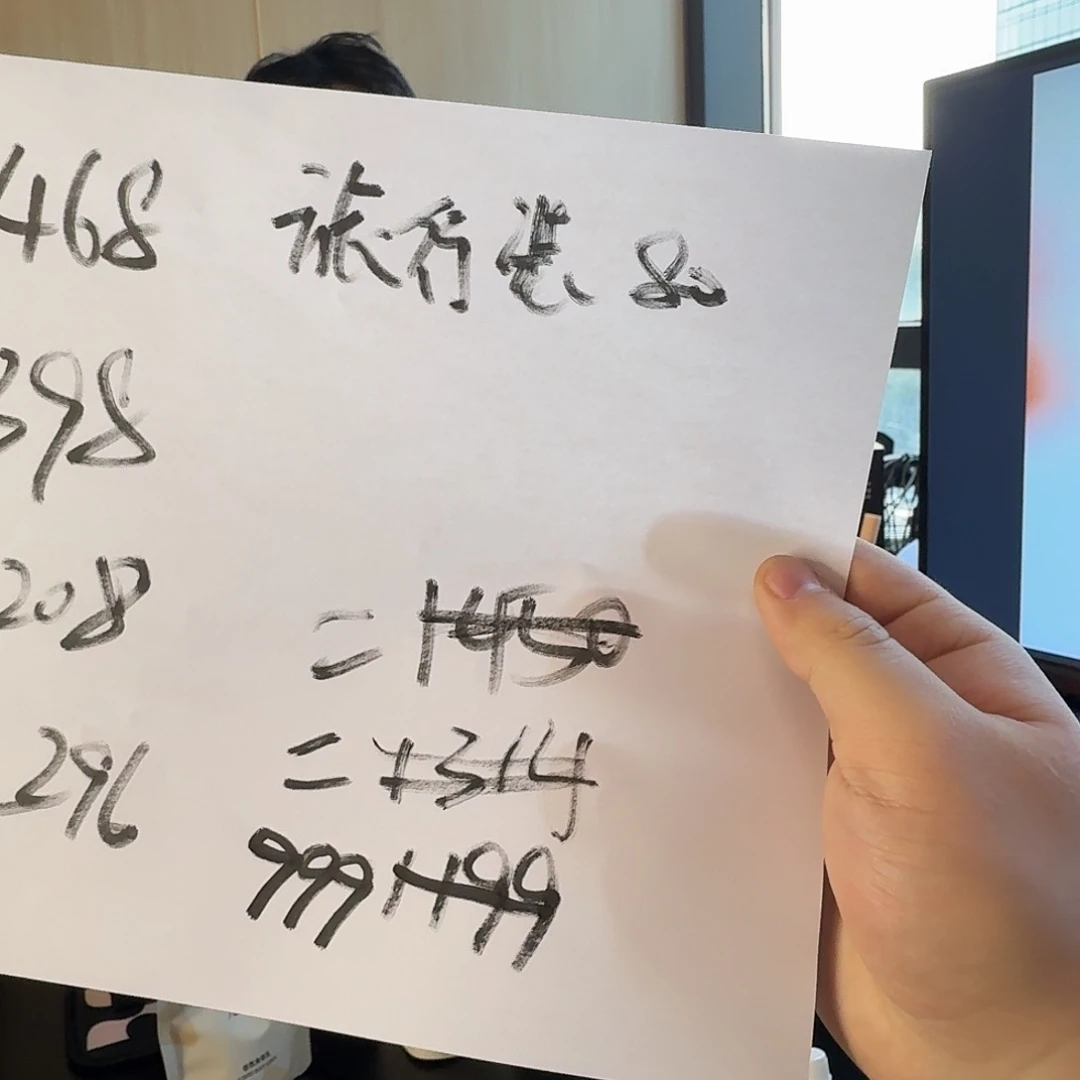 468 旅行装 80
398
208
= 1450
296
= 1314
999 1199